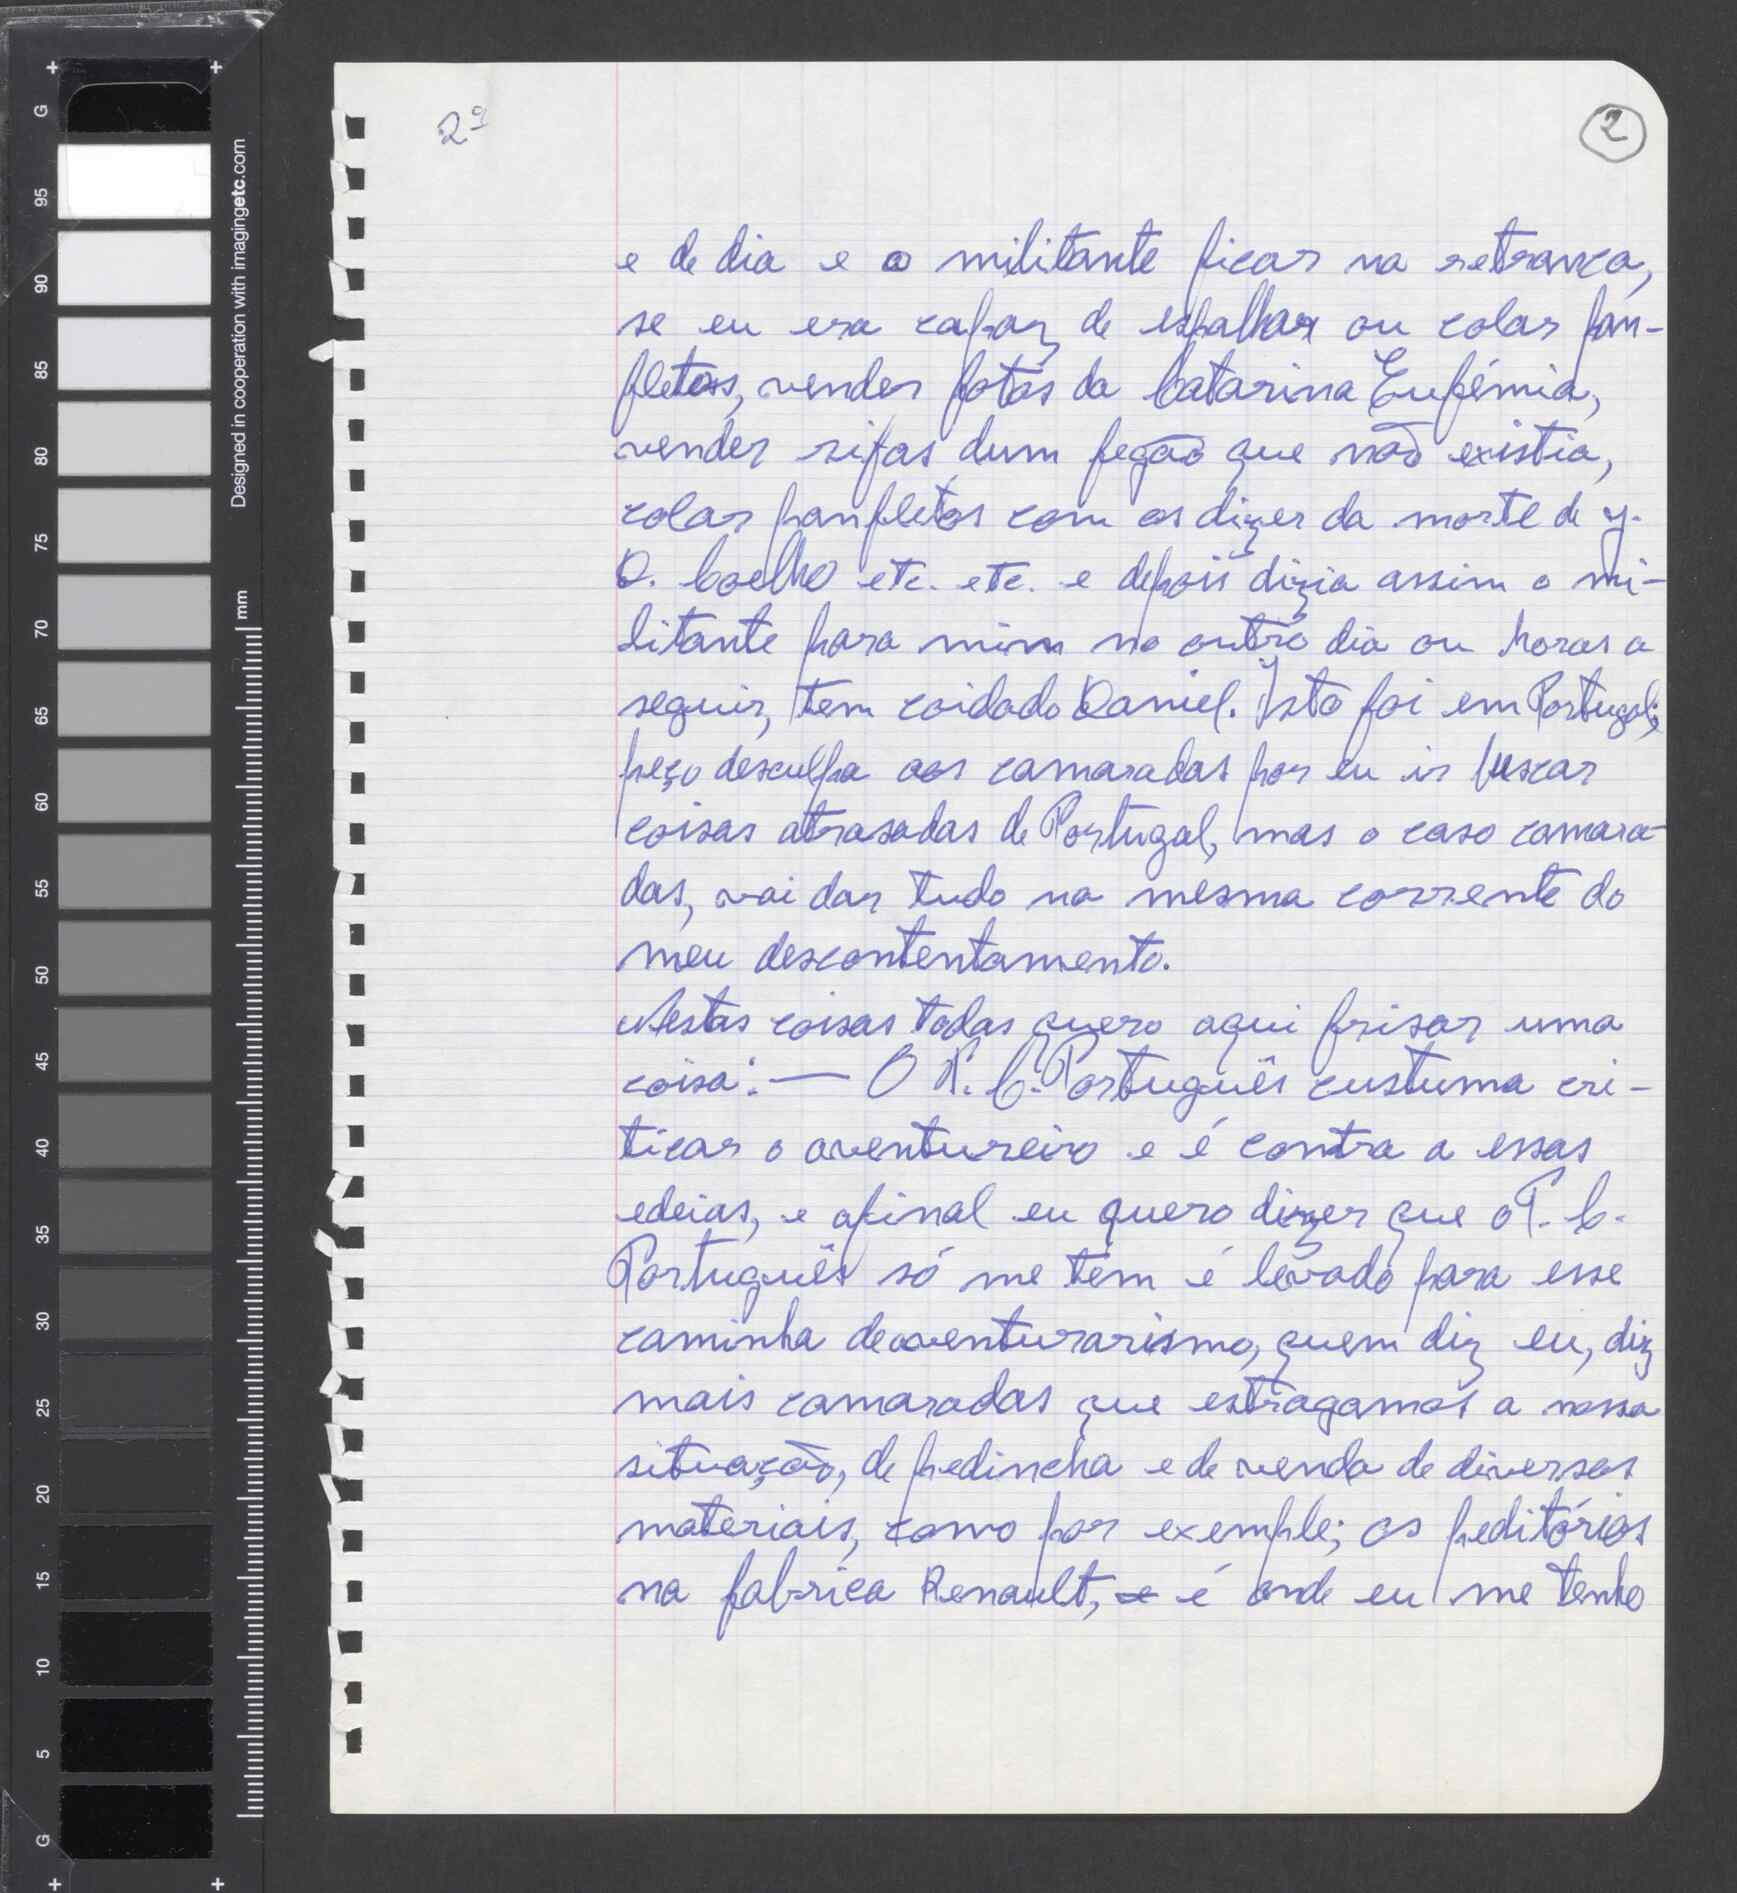 2º
2
e de dia e o militante ficar na retranca,
se eu era capaz de espalhar ou colar pan-
fletos, vender fotos da Catarina Eufémia,
vender rifas dum fogão que não existia,
colar panfletos com os dizer da morte de J.
D. Coelho etc. etc. e depois dizia assim o mi-
litante para mim no outro dia ou horas a
seguir, tem coidado Daniel. Isto foi em Portugal;
peço desculpa aos camaradas por eu ir buscar
coisas atrasadas de Portugal, mas o caso camara-
das, vai dar tudo na mesma corrente do
meu descontentamento.
Nestas coisas todas quero aqui frisar uma
coisa: — O P. C. Português custuma cri-
ticar o aventureiro e é contra a essas
edeias, e afinal eu quero dizer que o P. C.
Português só me têm é levado para esse
caminha de aventurarismo, quem diz eu, diz
mais camaradas que estragamos a nossa
situação, de pedincha e de venda de diversos
materiais, como por exemple; os peditórios
na fabrica Renault, e é onde eu me tenho
Designed in cooperation with imagingetc.com
mm
G
95
90
85
80
75
70
65
60
55
50
45
40
35
30
25
20
15
10
5
G